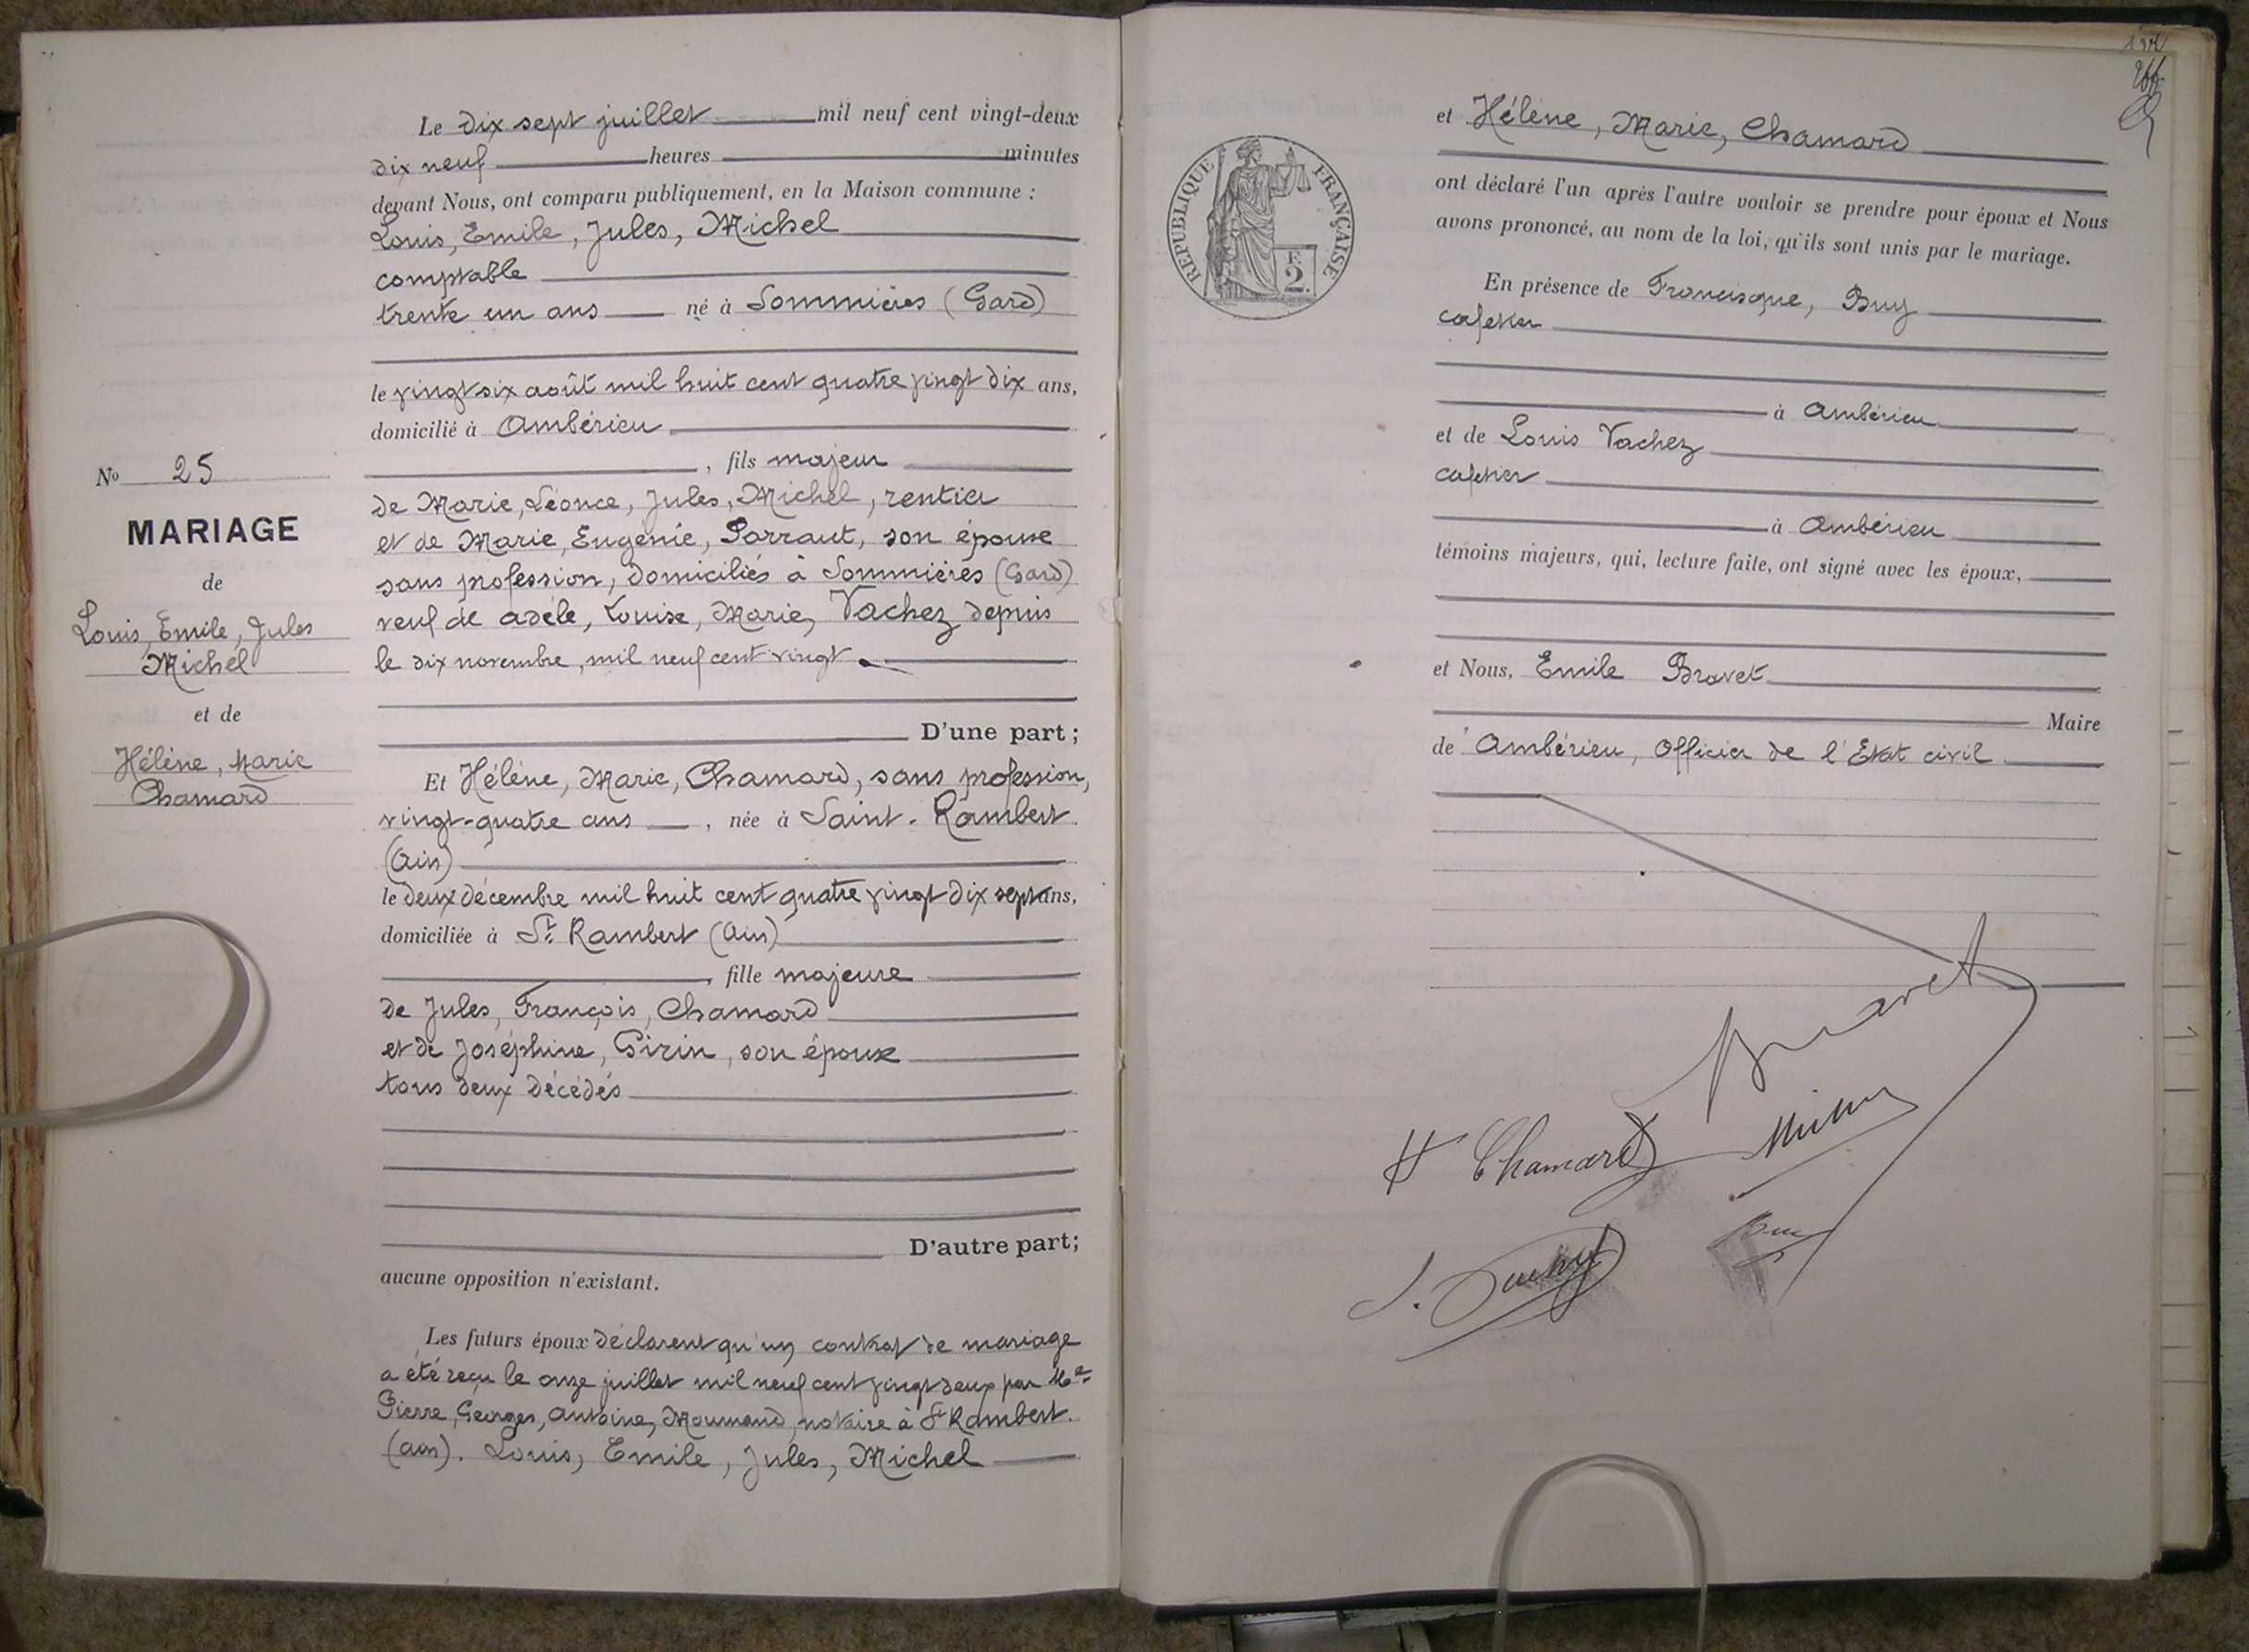 Le dix sept juillet mil neuf cent vingt-deux
dix neuf heures minutes
devant Nous, ont comparu publiquement, en la Maison commune :
Louis, Emile, Jules, Michel
comptable
trente un ans né à Sommières (Gard)
le vingt six août mil huit cent quatre vingt dix ans,
domicilié à Ambérieu
, fils majeur
de Marie, Léonce, Jules, Michel, rentier
et de Marie, Eugénie, Parraut, son épouse
sans profession, domiciliés à Sommières (Gard)
veuf de adèle, Louise, Marie, Vachez depuis
le dix novembre, mil neuf cent vingt.
D'une part ;
Et Hélène, Marie, Chamard, sans profession,
vingt-quatre ans , née à Saint-Rambert
(Ain)
le deux décembre mil huit cent quatre vingt dix sept ans,
domiciliée à St Rambert (Ain)
, fille majeure
de Jules, François, Chamard
et de Joséphine, Girin, son épouse
tous deux décédés
D'autre part;
aucune opposition n'existant.
Les futurs époux déclarent qu'un contrat de mariage
a été reçu le onze juillet mil neuf cent vingt deux par Me
Pierre, Georges, Antoine, notaire à St Rambert.
(ain). Louis, Emile, Jules, Michel
No 25
MARIAGE
de
Louis, Emile, Jules
Michel
et de
Hélène, Marie
Chamard
266
RÉPUBLIQUE FRANÇAISE
F.
2.
et Hélène, Marie, Chamard
ont déclaré l'un après l'autre vouloir se prendre pour époux et Nous
avons prononcé, au nom de la loi, qu'ils sont unis par le mariage.
En présence de Francisque, Buy
cafetier
à Ambérieu
et de Louis Vachez
cafetier
à Ambérieu
témoins majeurs, qui, lecture faite, ont signé avec les époux,
et Nous, Emile Bravet
Maire
de Ambérieu, Officier de l'Etat civil
Bravet
H Chamard
Buy